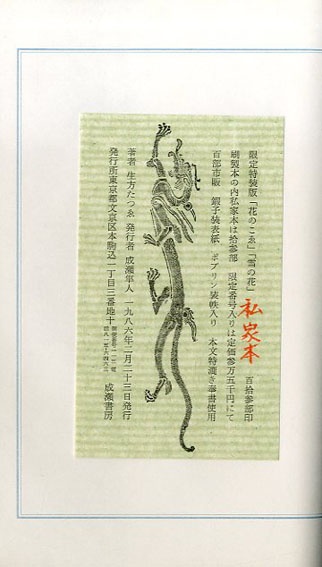 限定特装版「花のこゑ」「雪の花」 百拾参部印
刷製本の内私家本は拾参部 限定番号入りは定価参万五千円にて
百部市販 緞子装表紙 ポプリン装帙入り 本文特漉き奉書使用
私家本
著者 生方たつゑ 発行者 成瀬隼人 一九八六年二月二十三日発行
発行所東京都文京区本駒込一丁目三番地十 成瀬書房